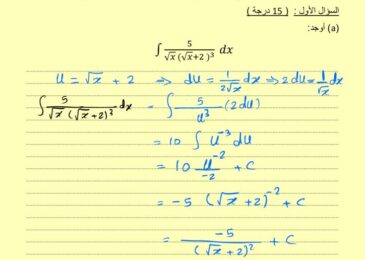 السؤال الأول : ( 15 درجة )
(a) أوجد:
∫ 5 / (√x (√x+2)³) dx
u = √x + 2 ⇒ du = 1/(2√x) dx ⇒ 2du = 1/√x dx
∫ 5 / (√x (√x+2)³) dx = ∫ 5/u³ (2du)
= 10 ∫ u⁻³ du
= 10 u⁻²/-2 + c
= -5 (√x + 2)⁻² + c
= -5 / (√x + 2)² + c